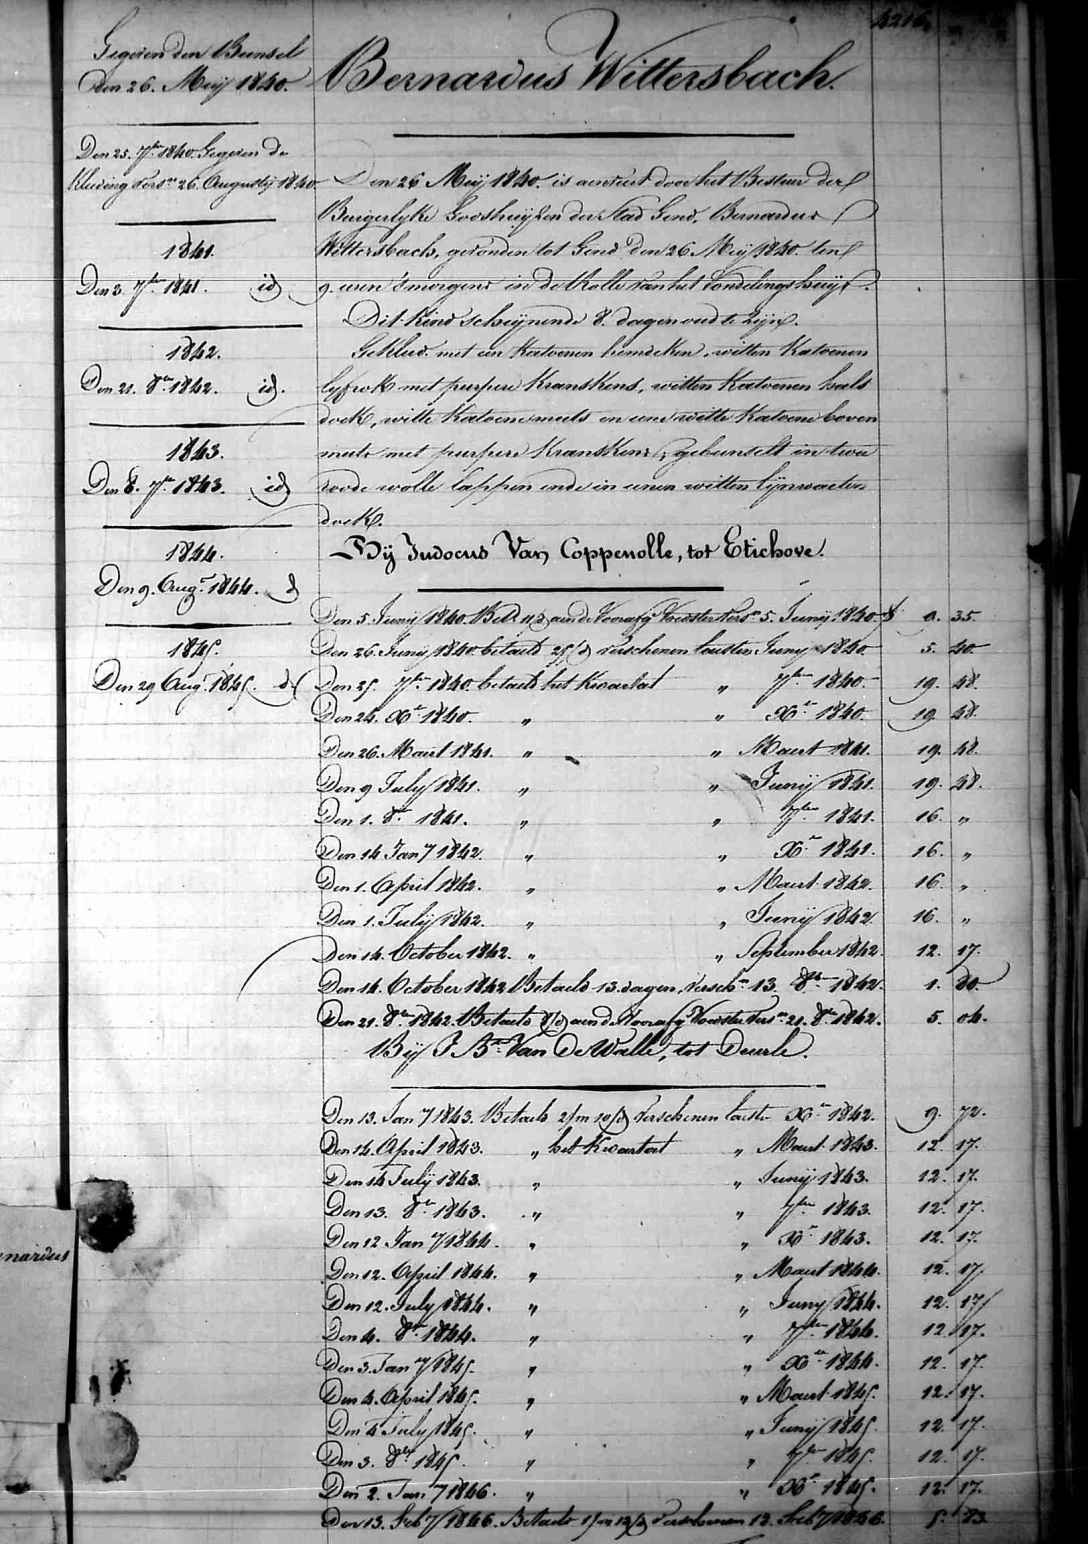 4216
Gegeven den Bunsel
Den 26. Meij 1840.
Den 25. 7br 1840. Gegeven de
Kleeding vers. 26 Augustij 1840
1841.
Den 3. 7br 1841. id
1842.
Den 21. 8br 1842. id.
1843.
Den 8. 7br 1843. id
1844.
Den 9. Augt 1844. d
1845.
Den 29 Augt 1845. d
Bernardus Wittersbach.
Den 26 Meij 1840. is aenveert door het Bestuer der
Burgerlyke Godshuijzen der Stad Gend, Bernardus
Wittersbach, gevonden tot Gend den 26 Meij 1840. ten
9. uren 's morgens in de Rolle van het Vondelingshuijs.
Dit kind scheijnende 8. dagen oud te zijn.
Gekleed met een katoenen hemdeken, witten katoenen
lyfrok met purpere kranskens, witten katoenen hals
doek, witte katoene muts en eene witte katoene boven
muts met purpere kranskens, gebunselt in twee
roode wolle lappen ende in eenen witten lijnwaeten
doek.
Bij Judocus Van Coppenolle, tot Etichove.
Den 5. Junij 1840. Bet. 11/d aen de Voorafg Voedster vers. 5. Junij 1840 9. 35
Den 26. Junij 1840. betaeld 25/d verschenen laetsten Juny 1840 5. 40
Den 25. 7br 1840. betaelt het kwartaet " 7br 1840. 19. 48
Den 24. Xr 1840. " " Xr 1840. 19. 48.
Den 26. Maert 1841. " " Maert 1841. 19. 48.
Den 9 July 1841. " " Junij 1841. 19. 48.
Den 1. 8r 1841. " " 7br 1841. 16. "
Den 14 Jany 1842. " " Xr 1841. 16. "
Den 1. April 1842. " " Maert 1842. 16. "
Den 1. Julij 1842. " " Junij 1842. 16. "
Den 14. October 1842. " " September 1842. 12. 17.
Den 14. October 1842 Betaeld 13. dagen, versch. 13. 8br 1842. 1. 80
Den 21. 8br 1842. Betaeld 8/d aen de Voorafg Voedster vers. 21. 8br 1842. 5. 04.
Bij J. Bte Van De Walle, tot Deurle.
Den 13. Jany 1843. Betaeld 2/m 10/d verschenen laetste Xr 1842. 9. 72.
Den 14. April 1843. " het kwartaet " Maert 1843. 12. 17.
Den 14 Julij 1843. " " Junij 1843. 12. 17.
Den 13. 8br 1843. " " 7br 1843. 12. 17.
Den 12 Jany 1844. " " Xr 1843. 12. 17.
Den 12. April 1844. " " Maert 1844. 12. 17.
Den 12. July 1844. " " Juny 1844. 12. 17
Den 4. 8br 1844. " " 7br 1844. 12. 17.
Den 3. Jany 1845. " " Xr 1844. 12. 17.
Den 4. April 1845. " " Maert 1845. 12. 17.
Den 4 July 1845. " " Junij 1845. 12. 17.
Den 3. 8br 1845. " " 7br 1845. 12. 17.
Den 2. Jany 1846. " " Xr 1845. 12. 17.
Den 13. Feby 1846. Betaeld 1/m 12/d verschenen 12. Feby 1846. 5. 73
nardus